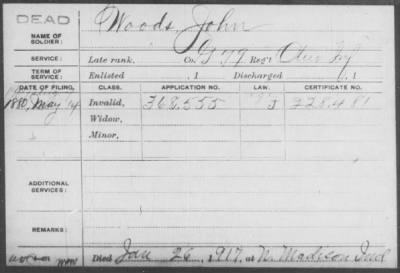 DEAD
Woods, John
NAME OF
SOLDIER:
SERVICE: Late rank, Co. G 99 Reg't Ohio Inf
TERM OF
SERVICE: Enlisted , 1 Discharged , 1
DATE OF FILING. CLASS. APPLICATION NO. LAW. CERTIFICATE NO.
1880, May 14 Invalid, 368,555
Widow,
Minor,
ADDITIONAL
SERVICES:
REMARKS:
Died Jan 26, 1917, at N. Madison Ind